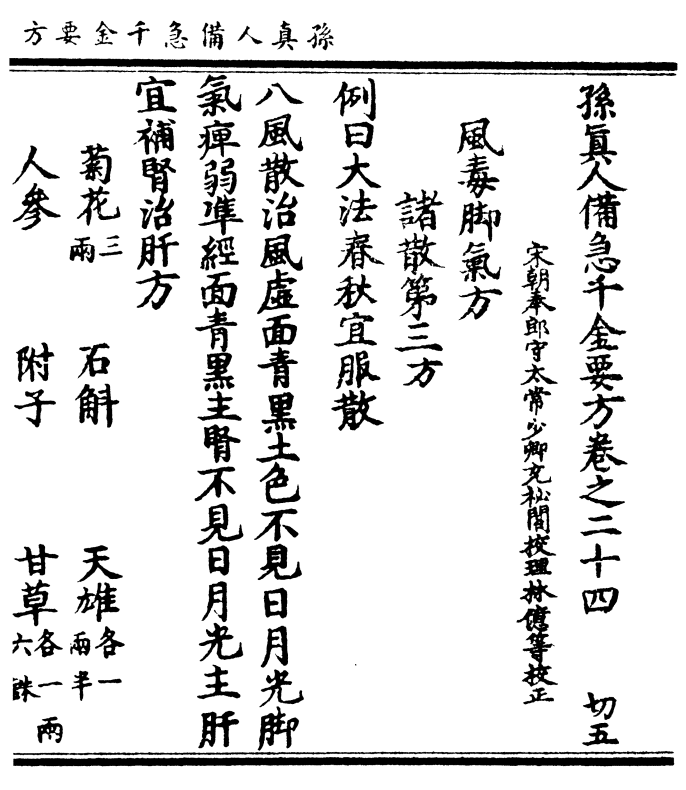 孫真人備急千金要方
孫眞人備急千金要方卷之二十四 切五
宋朝奉郎守太常少卿充秘閣校理林億等校正
風毒脚氣方
諸散第三方
例曰大法春秋宜服散
八風散治風虛面青黑土色不見日月光脚
氣痺弱凖經面青黑主腎不見日月光主肝
宜補腎治肝方
菊花三兩 石斛 天雄各一兩半
人參 附子 甘草各一兩六銖